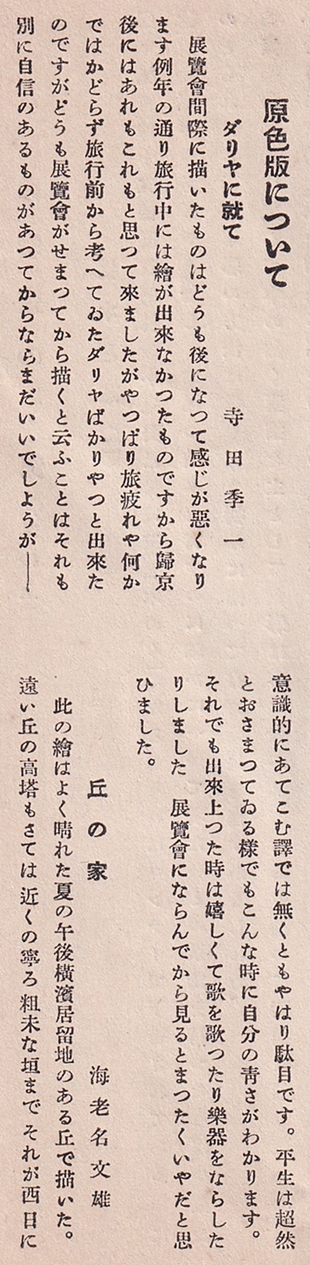 原色版について
ダリヤに就て
寺田季一
展覽會間際に描いたものはどうも後になつて感じが惡くなり
ます例年の通り旅行中には繪が出來なかつたものですから歸京
後にはあれもこれもと思つて來ましたがやつぱり旅疲れや何か
ではかどらず旅行前から考へてゐたダリヤばかりやつと出來た
のですがどうも展覽會がせまつてから描くと云ふことはそれも
別に自信のあるものがあつてからならまだいいでしようが――
意識的にあてこむ譯では無くともやはり駄目です。平生は超然
とおさまつてゐる樣でもこんな時に自分の靑さがわかります。
それでも出來上つた時は嬉しくて歌を歌つたり樂器をならした
りしました　展覽會にならんでから見るとまつたくいやだと思
ひました。
丘の家
海老名文雄
此の繪はよく晴れた夏の午後橫濱居留地のある丘で描いた。
遠い丘の高塔もさては近くの寧ろ粗末な垣まで それが西日に